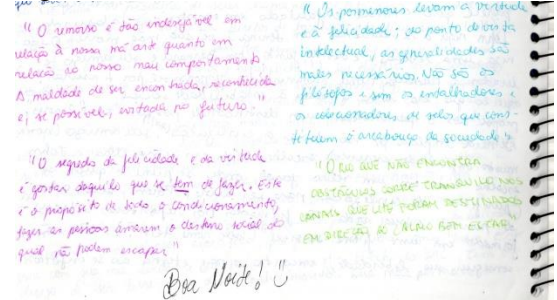 "O remorso é tão indesejável em
relação à nossa má arte quanto em
relação ao nosso mau comportamento
A maldade de ser encontrada, reconhecida
e, se possível, evitada no futuro."
"O segredo da felicidade e da virtude
é gostar daquilo que se tem de fazer. Este
é o propósito de todo o condicionamento,
fazer as pessoas amarem o destino social do
qual não podem escapar"
"Os pormenores levam à virtude
e à felicidade; do ponto de vista
intelectual, as generalidades são
males necessários. Não são os
filósofos e sim os entalhadores e
os colecionadores de selos que cons-
tituem o arcabouço da sociedade"
"O rio que não encontra
obstáculos corre tranquilo nos
canais que lhe foram destinados
em direção ao calmo bem estar"
Boa Noite!